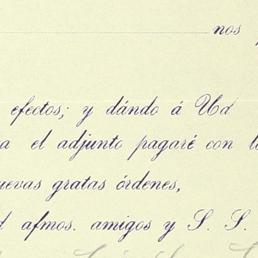 nos
efectos; y dándo á Ud
el adjunto pagaré con
gratas órdenes,
afmos. amigos y S. S.